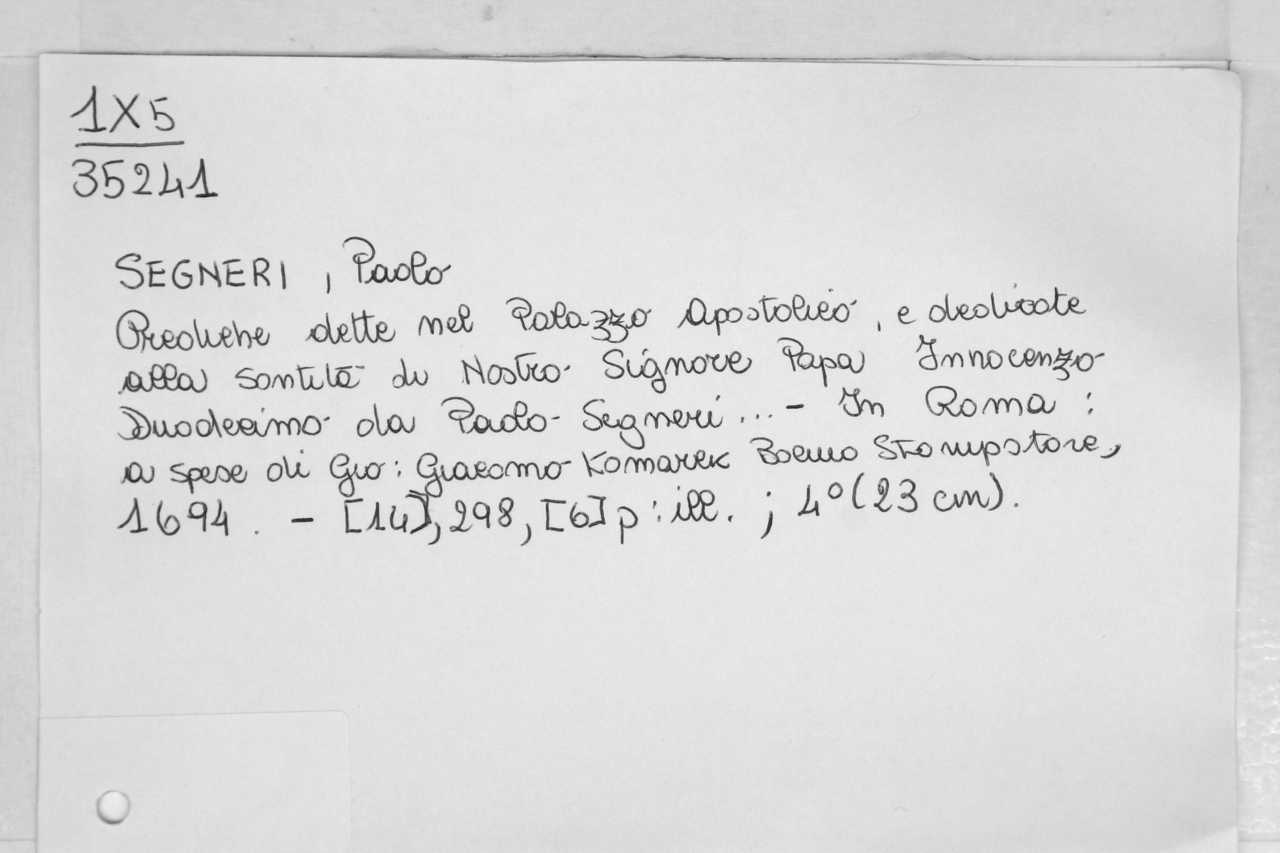 1X5
35241
SEGNERI, Paolo
Prediche dette nel Palazzo Apostolico, e dedicate
alla santità di Nostro Signore Papa Innocenzo
Duodecimo da Paolo Segneri ... - In Roma :
a spese di Gio: Giacomo Komarek Boemo Stampatore,
1694. - [14], 298, [6] p : ill. ; 4° (23 cm).